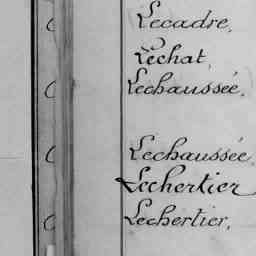 Lecadre,
Lechat,
Lechaussée,
Lechaussée,
Lechertier
Lechertier,